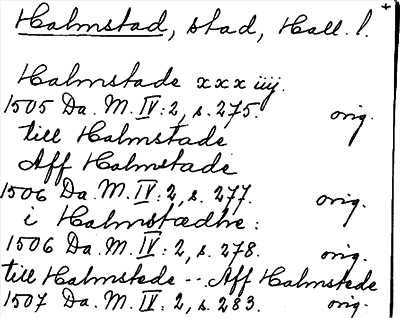 Halmstad, stad, Hall. l.
Halmstade xxx iiij.
1505 Da. M. IV: 2, s. 275. orig.
till Halmstade
Aff Halmstade
1506 Da. M. IV: 2, s. 277. orig.
i Halmstædhe:
1506 Da. M. IV: 2, s. 278. orig.
till Halmstede -- Aff Halmstede
1507 Da. M. IV: 2, s. 283. orig.